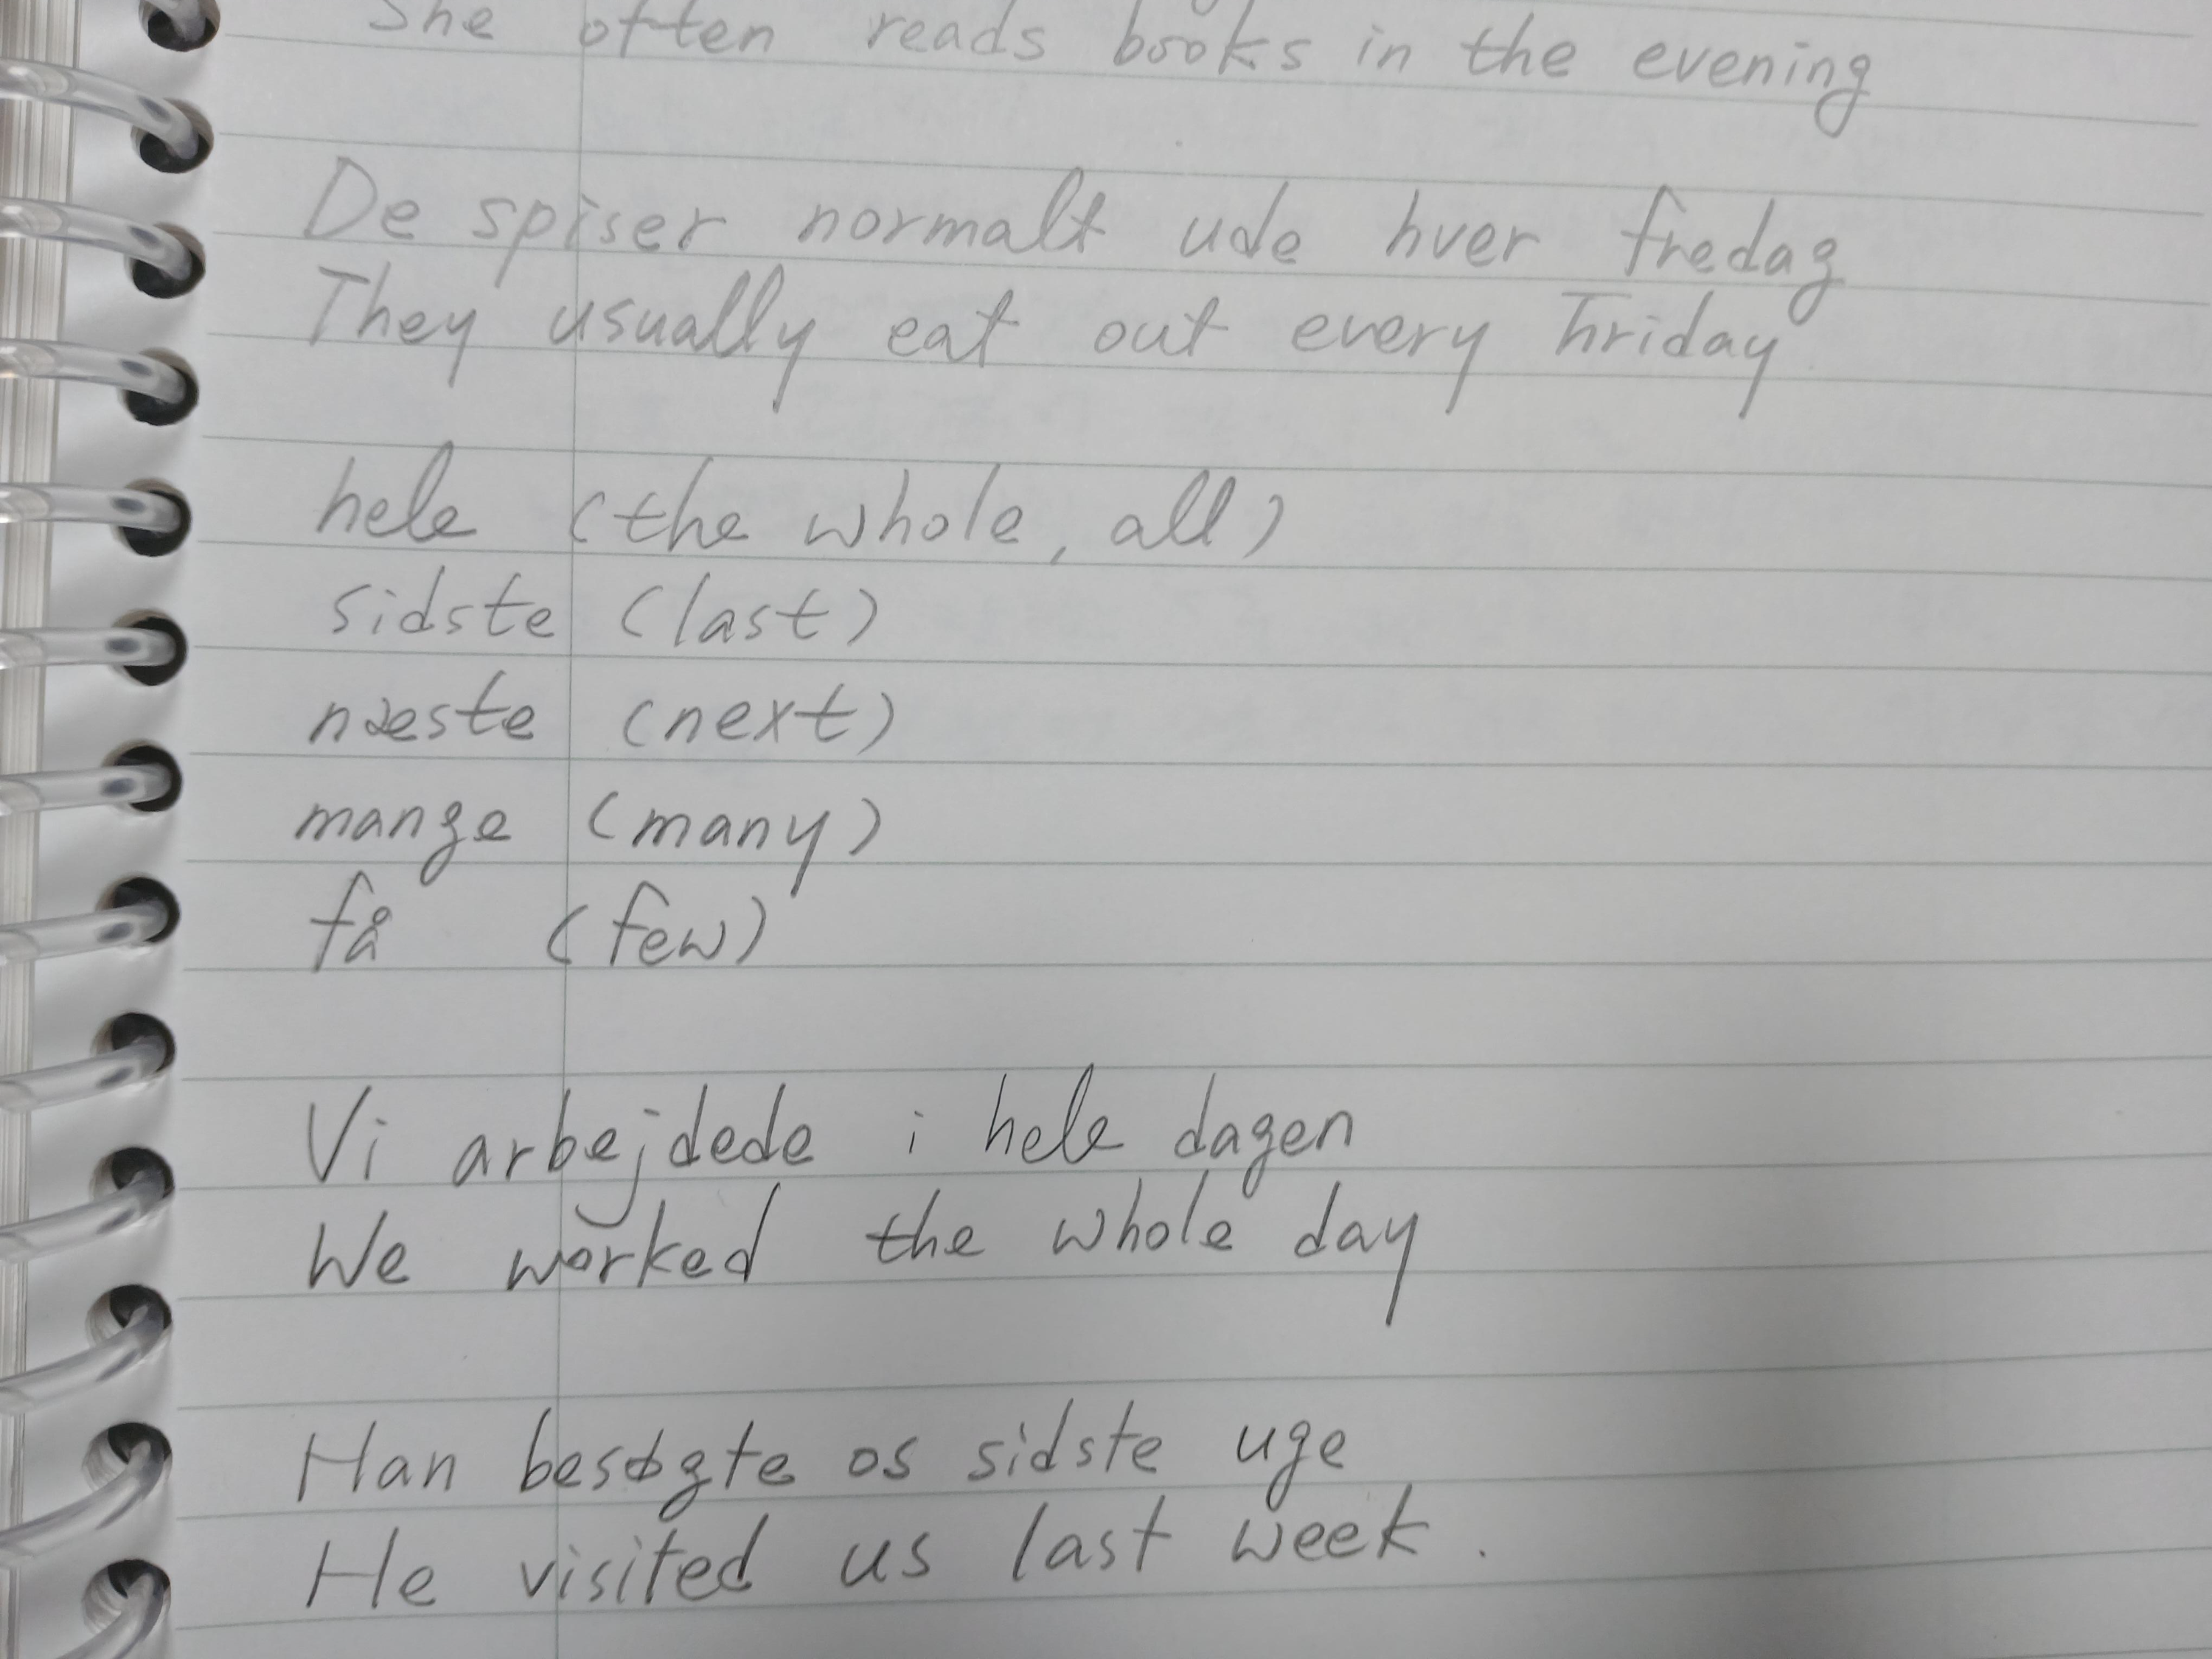 She often reads books in the evening
De spiser normalt ude hver fredag
They usually eat out every Friday
hele (the whole, all)
sidste (last)
næste (next)
mange (many)
få (few)
Vi arbejdede i hele dagen
We worked the whole day
Han besøgte os sidste uge
He visited us last week.